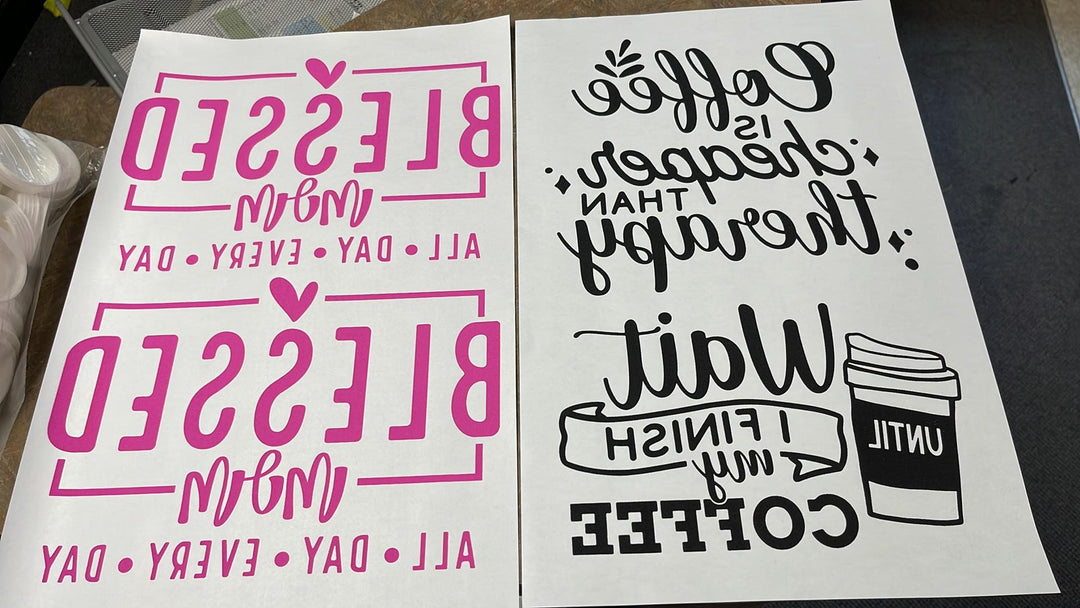 BLESSED
mom
ALL • DAY • EVERY • DAY
BLESSED
mom
ALL • DAY • EVERY • DAY
Coffee
IS
cheaper
THAN
therapy
Wait
UNTIL
I FINISH
my
COFFEE